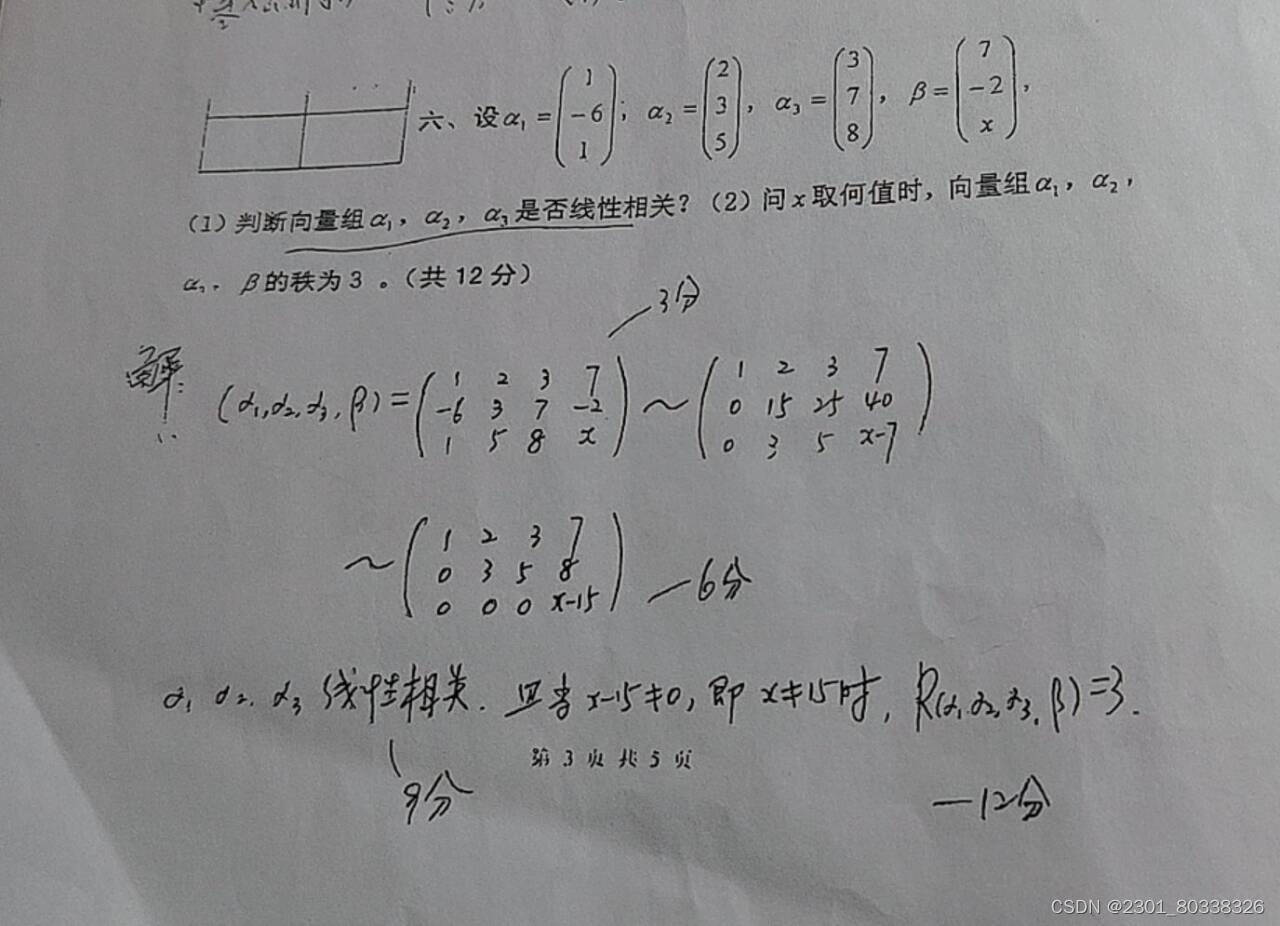 六、设α₁ = (1 -6 1); α₂ = (2 3 5), α₃ = (3 7 8), β = (7 -2 x),
(1)判断向量组α₁，α₂，α₃是否线性相关？(2)问x取何值时，向量组α₁，α₂，
α₃，β的秩为3 。(共12分)
3分
解: (α₁,α₂,α₃,β) = (1 2 3 7; -6 3 7 -2; 1 5 8 x) ~ (1 2 3 7; 0 15 25 40; 0 3 5 x-7)
~ (1 2 3 7; 0 3 5 8; 0 0 0 x-15) —6分
α₁ α₂, α₃ 线性相关. 且当 x-15≠0, 即 x≠15时, R(α₁,α₂,α₃,β)=3.
第 3 页 共 5 页
9分
—12分
CSDN @2301_80338326